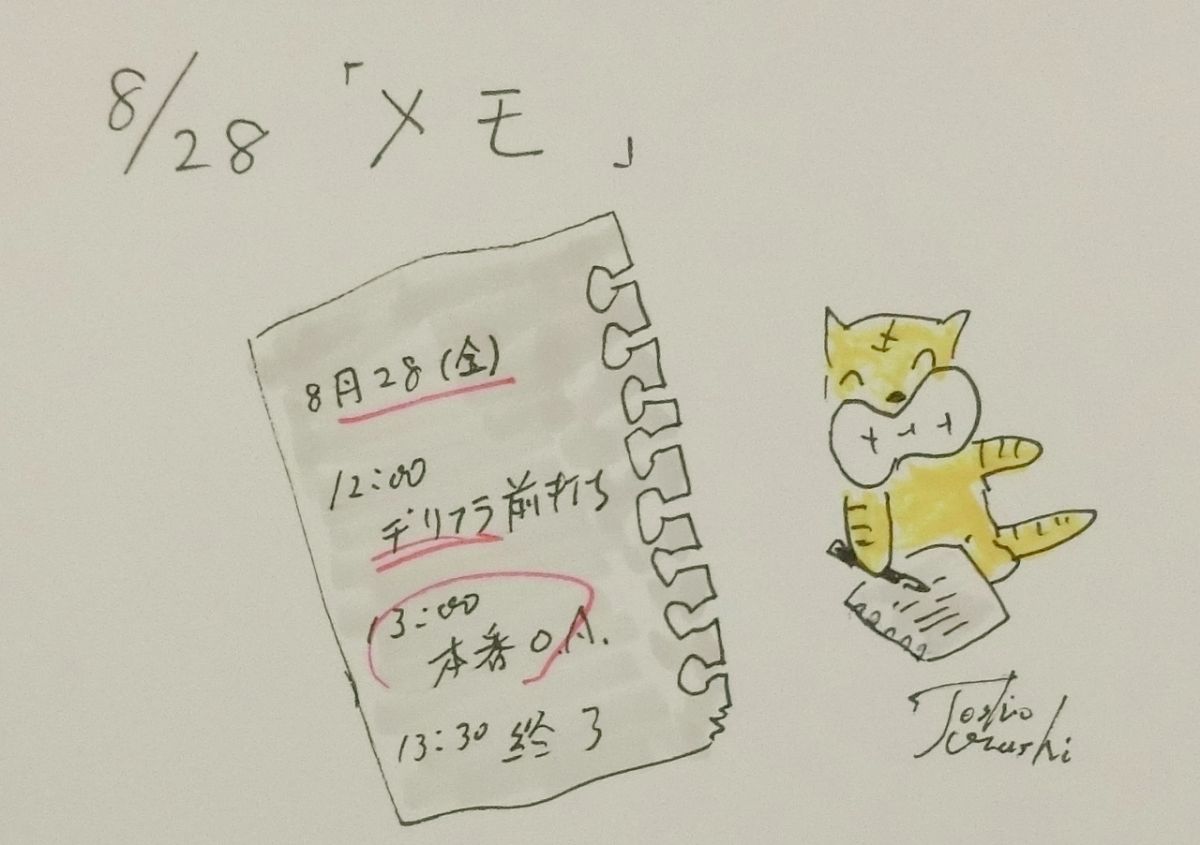 8/28 「メモ」
8月28(金)
12:00
デリフラ前打ち
13:00
本番 O.A.
13:30 終了
Toshio